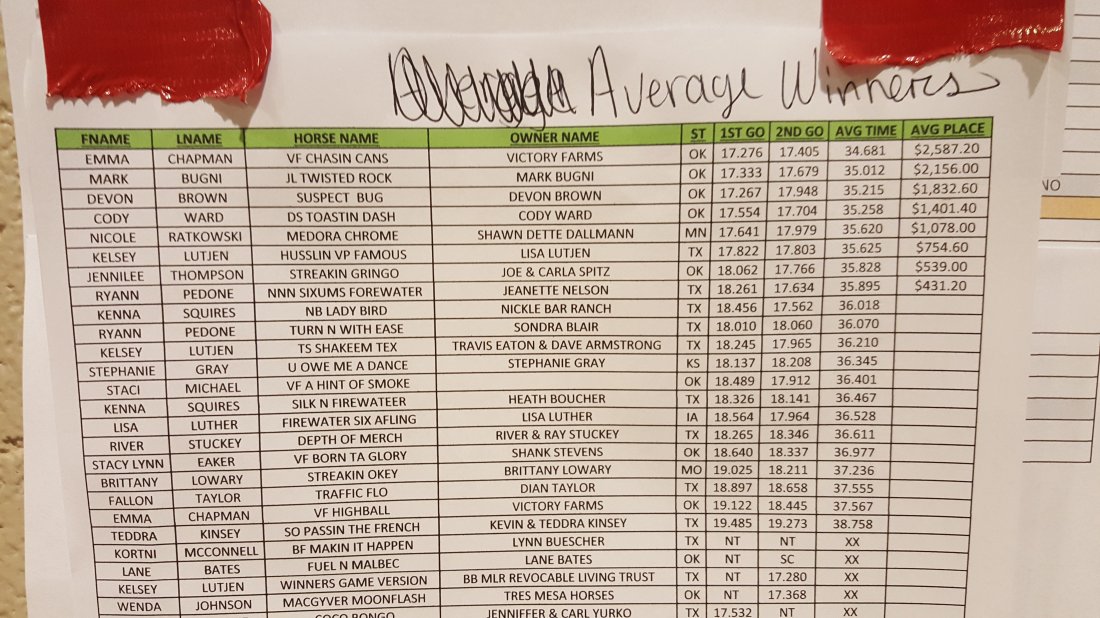 Average Winners
FNAME LNAME HORSE NAME OWNER NAME ST 1ST GO 2ND GO AVG TIME AVG PLACE
EMMA CHAPMAN VF CHASIN CANS VICTORY FARMS OK 17.276 17.405 34.681 $2,587.20
MARK BUGNI JL TWISTED ROCK MARK BUGNI OK 17.333 17.679 35.012 $2,156.00
DEVON BROWN SUSPECT BUG DEVON BROWN OK 17.267 17.948 35.215 $1,832.60
CODY WARD DS TOASTIN DASH CODY WARD OK 17.554 17.704 35.258 $1,401.40
NICOLE RATKOWSKI MEDORA CHROME SHAWN DETTE DALLMANN MN 17.641 17.979 35.620 $1,078.00
KELSEY LUTJEN HUSSLIN VP FAMOUS LISA LUTJEN TX 17.822 17.803 35.625 $754.60
JENNILEE THOMPSON STREAKIN GRINGO JOE & CARLA SPITZ OK 18.062 17.766 35.828 $539.00
RYANN PEDONE NNN SIXUMS FOREWATER JEANETTE NELSON TX 18.261 17.634 35.895 $431.20
KENNA SQUIRES NB LADY BIRD NICKLE BAR RANCH TX 18.456 17.562 36.018
RYANN PEDONE TURN N WITH EASE SONDRA BLAIR TX 18.010 18.060 36.070
KELSEY LUTJEN TS SHAKEEM TEX TRAVIS EATON & DAVE ARMSTRONG TX 18.245 17.965 36.210
STEPHANIE GRAY U OWE ME A DANCE STEPHANIE GRAY KS 18.137 18.208 36.345
STACI MICHAEL VF A HINT OF SMOKE OK 18.489 17.912 36.401
KENNA SQUIRES SILK N FIREWATEER HEATH BOUCHER TX 18.326 18.141 36.467
LISA LUTHER FIREWATER SIX AFLING LISA LUTHER IA 18.564 17.964 36.528
RIVER STUCKEY DEPTH OF MERCH RIVER & RAY STUCKEY TX 18.265 18.346 36.611
STACY LYNN EAKER VF BORN TA GLORY SHANK STEVENS OK 18.640 18.337 36.977
BRITTANY LOWARY STREAKIN OKEY BRITTANY LOWARY MO 19.025 18.211 37.236
FALLON TAYLOR TRAFFIC FLO DIAN TAYLOR TX 18.897 18.658 37.555
EMMA CHAPMAN VF HIGHBALL VICTORY FARMS OK 19.122 18.445 37.567
TEDDRA KINSEY SO PASSIN THE FRENCH KEVIN & TEDDRA KINSEY TX 19.485 19.273 38.758
KORTNI MCCONNELL BF MAKIN IT HAPPEN LYNN BUESCHER TX NT NT XX
LANE BATES FUEL N MALBEC LANE BATES OK NT SC XX
KELSEY LUTJEN WINNERS GAME VERSION BB MLR REVOCABLE LIVING TRUST TX NT 17.280 XX
WENDA JOHNSON MACGYVER MOONFLASH TRES MESA HORSES OK NT 17.368 XX
COCO BONGO JENNIFFER & CARL YURKO TX 17.532 NT XX
NO